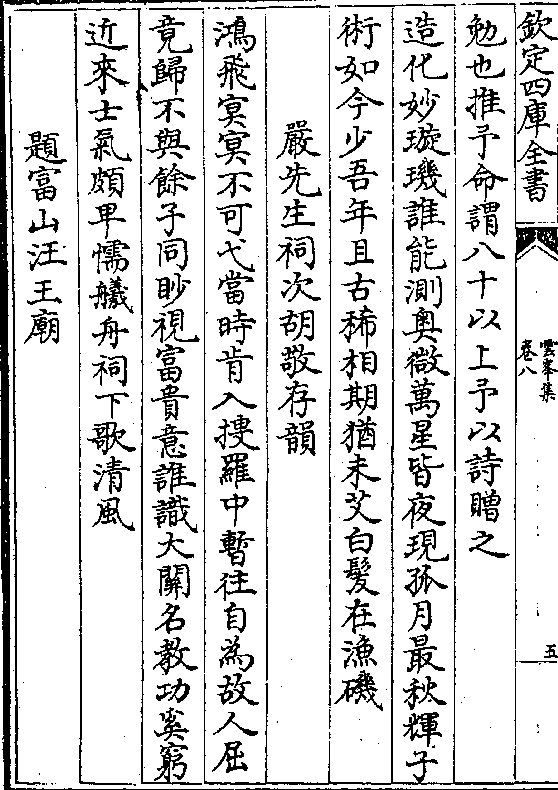 欽定四庫全書
雲峯集
卷八
五
勉也推予命謂八十以上予以詩贈之
造化妙璇璣誰能測奥微萬星皆夜現孤月最秋輝子
術如今少吾年且古稀相期猶未艾白髮在漁磯
嚴先生祠次胡敬存韻
鴻飛㝠㝠不可弋當時肯入摟羅中暫往自為故人屈
竟歸不與餘子同眇視富貴意誰識大闗名教功奚窮
近來士氣頗卑懦艤舟祠下歌清風
題富山汪王廟